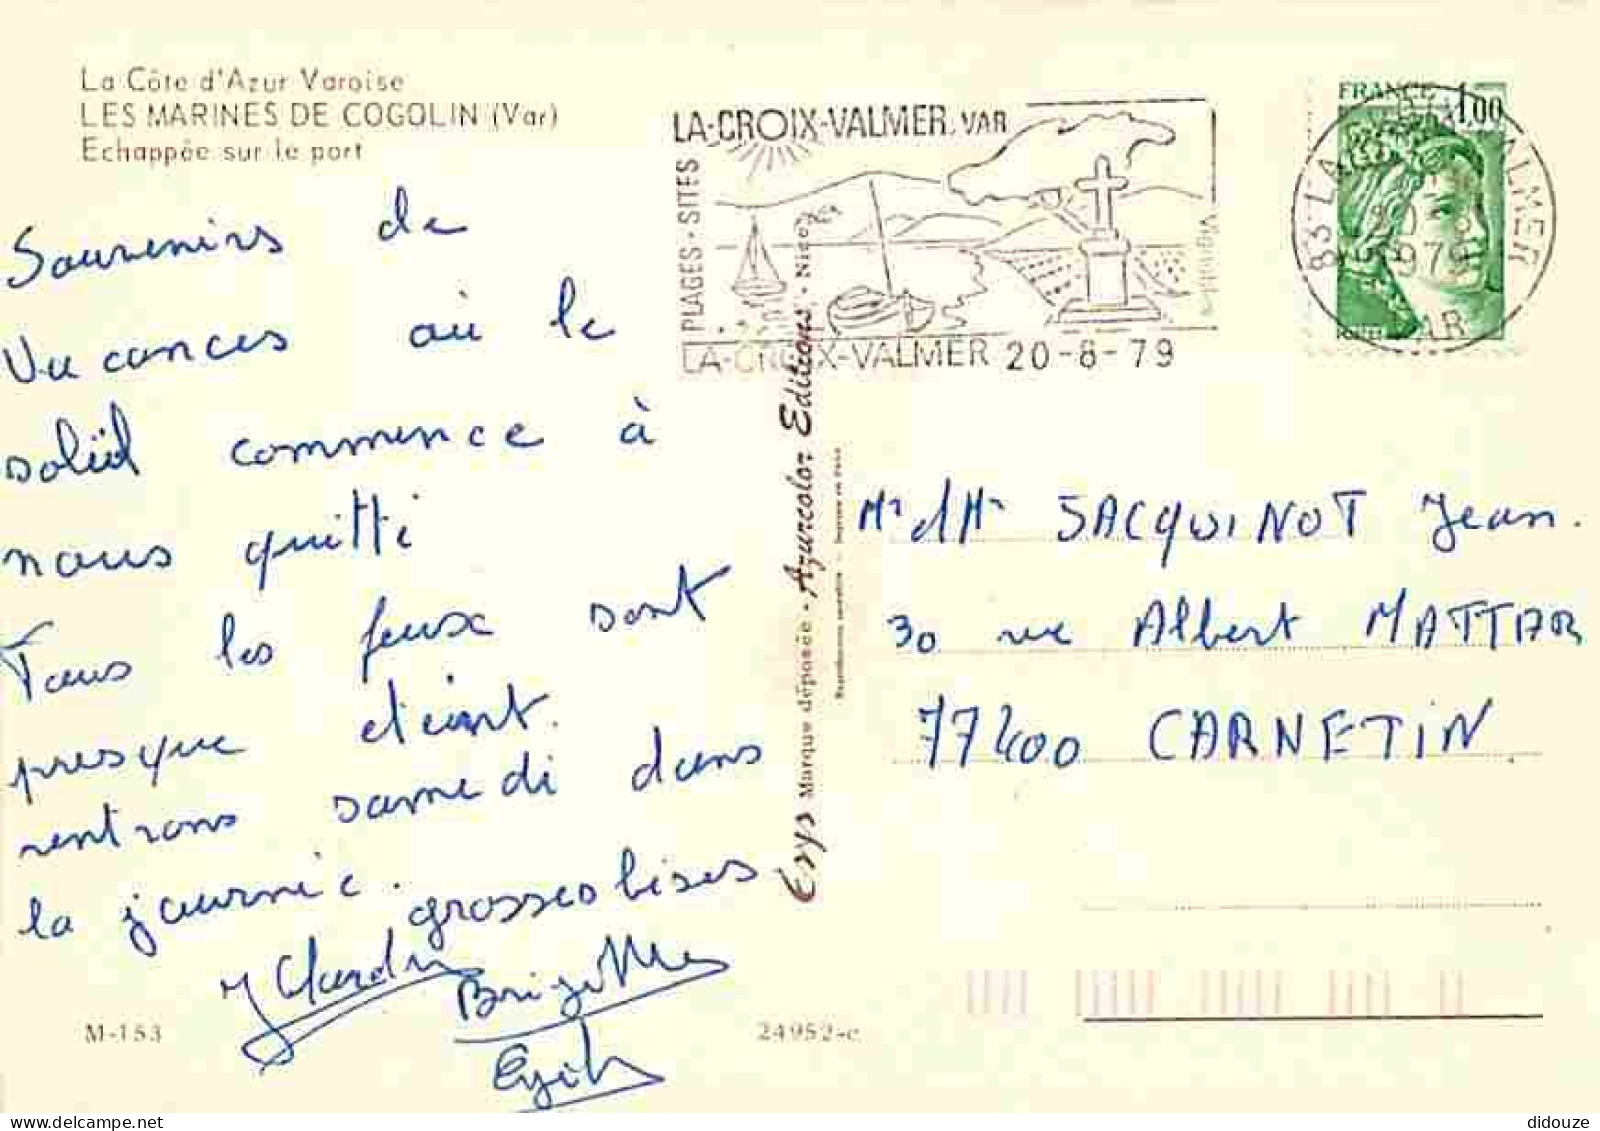 La Côte d'Azur Varoise
LES MARINES DE COGOLIN (Var)
Echappée sur le port
LA-CROIX-VALMER. VAR
PLAGES - SITES
Vignoble
LA-CROIX-VALMER 20-8-79
FRANCE 1,00
83 LA VALMER
20-8
1979
VAR
Souvenirs de
Vacances où le
soleil commence à
nous quitti
Tous les feux sont
presque éteint.
rentrons samedi dans
la journée.
grosses bises
Brigitte
M-153
24952-c
Marque déposée - Azurcolor Editions - Nice
Reproduction interdite -
Mr et Mme JACQUINOT Jean.
30 rue Albert MATTAR
77400 CARNETIN
didouze